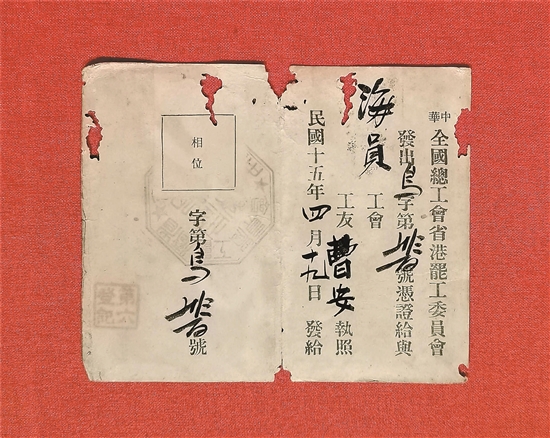 中華
全國總工會省港罷工委員會
發出鳥字第號憑證給與
海員工會
工友曹安執照
民國十五年四月十九日發給
相位
字第鳥號